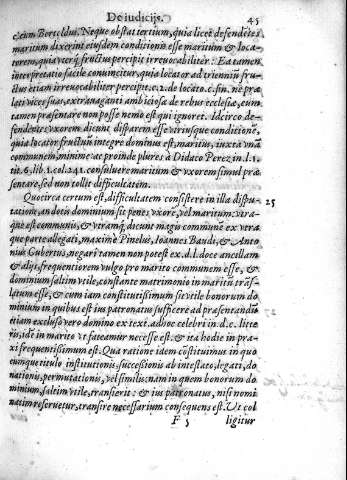 De iudicijs. 45
eium Bortoldus. Neque obstat tertium, quia licet defendētes
maritum dixerint eiusdem conditionis esse maritum & loca-
torem, quia vterq; fructus percipit irreuocabiliter: Ea tamen
interpretatio facile conuincitur, quia locator ad triennīū fru-
ctus etiam irreuocabiliter percipit. c. 2. de locato. c. fin. ne præ
lati vices suas, extrauaganti ambiciosa de rebus ecclesiæ, cum
tamen præsentare non posse nemo est qui ignoret. Idcirco de-
fendētes vxorem dicunt disparem esse vtriusque conditionē,
quia locator fructuū integre dominus est, maritus, iuxta vnā
communem, minime: ac proinde plures à Didaco Perez in l. 1.
tit. 6. lib. 1. col. 241. consuluere maritum & vxorem simul præ
sentare, sed non tollit difficultatem.
Quocirca certum est, difficultatem consistere in illa dispu- 25
tatione, an dotis dominium sit penes vxore, vel maritum: vtra-
que est communis, & vtramq; dicunt magis commune ex vtra
que parte allegati, maximè Pinelus, Ioannes Baudi, & Anto
nius Gubertus, negari tamen non potest ex. d. l. doce ancillam
& alijs, frequentiorem vulgo pro marito communem esse, &
dominium saltim vtile, constante matrimonio in maritū trās-
latum esse, & cum iam constitutissimum sit vtile bonorum do
minium in quibus est ius patronatus sufficere ad præsentandū
etiam excluso vero domino ex text. ad hoc celebri in d. c. litte
ris, idē in marito vt fateamur necesse est: & ita hodie in pra-
xi frequentissimum est. Qua ratione idem cōstituimus in quo
cunque titulo institutionis, successionis ab intestato, legati, do
nationis, permutationis, vel similis: nam in quem bonorum do
minium, saltim vtile, transierit: & ius patronatus, nisi nomi
natim reseruetur, transire necessarium consequens est. Vt col
F 3 ligitur